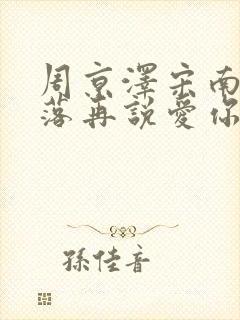 周京澤宋南
落再說愛你
孫佳音